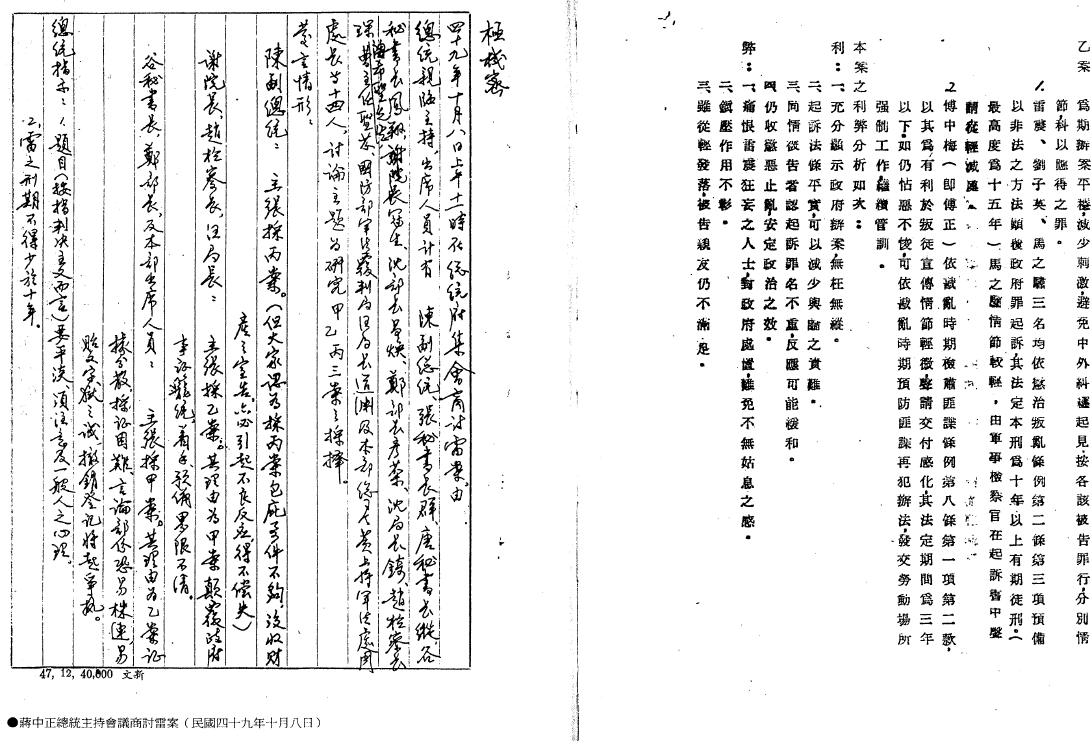 乙案
為期辦案平穩減少刺激避免中外科邏起見按各該被告罪行分別情
節科以應得之罪。
1.雷震、劉子英、馬之驌三名均依懲治叛亂條例第二條第三項預備
以非法之方法顛覆政府罪起訴其法定本刑為十年以上有期徒刑。(
最高度為十五年)馬之驌情節較輕,由軍事檢察官在起訴書中聲
請從輕減處。
2.傅中梅(即傅正)依戡亂時期檢肅匪諜條例第八條第一項第二款,
以其為有利於叛徒宣傳情節輕微聲請交付感化其法定期間為三年
以下,如仍怙惡不悛,可依戡亂時期預防匪諜再犯辦法,發交勞動場所
强制工作,繼續管訓。
本案之利弊分析如次:
利:一、充分顯示政府辦案無枉無縱。
二、起訴法條平實,可以減少輿論之責難。
三、同情被告者認起訴罪名不重,反應可能緩和。
四、仍收懲惡止亂,安定政治之效。
弊:一、痛恨雷震狂妄之人士,對政府處置,難免不無姑息之感。
二、鎮壓作用不彰。
三、雖從輕發落,被告親友仍不滿足。
極機密
四十九年十月八日上午十一時在總統府集會商討雷案,由
總統親臨主持,出席人員計有 陳副總統、張秘書長群、唐秘書長縱、谷
秘書長鳳翔、謝院長冠生、沈部長昌煥、鄭部長彥棻、沈局長錡、趙檢察長
琛、曹主任聖芬、國防部軍法覆判局汪局長道淵及本部總司令黃上將軍法處周
處長等十四人,討論主題為研究甲乙丙三案之採擇
發言情形:
陳副總統: 主張採丙案。(但大家認為採丙案包庇要件不夠,沒收財
產之宣告,亦必引起不良反應,得不償失)
謝院長、趙檢察長、汪局長: 主張採乙案,其理由為甲案顛覆政府
事證籠統,着手、預備界限不清。
谷秘書長、鄭部長及本部出席人員: 主張採甲案。其理由為乙案證
據分散,採證困難,言論部份恐易株連,易
貽文字獄之譏,撤銷登記將起爭執。
總統指示:1.題目(按指判決主文而言)要平淡,須注意及一般人之心理。
2.雷之刑期不得少於十年。
47, 12, 40,000 文新
●蔣中正總統主持會議商討雷案(民國四十九年十月八日)